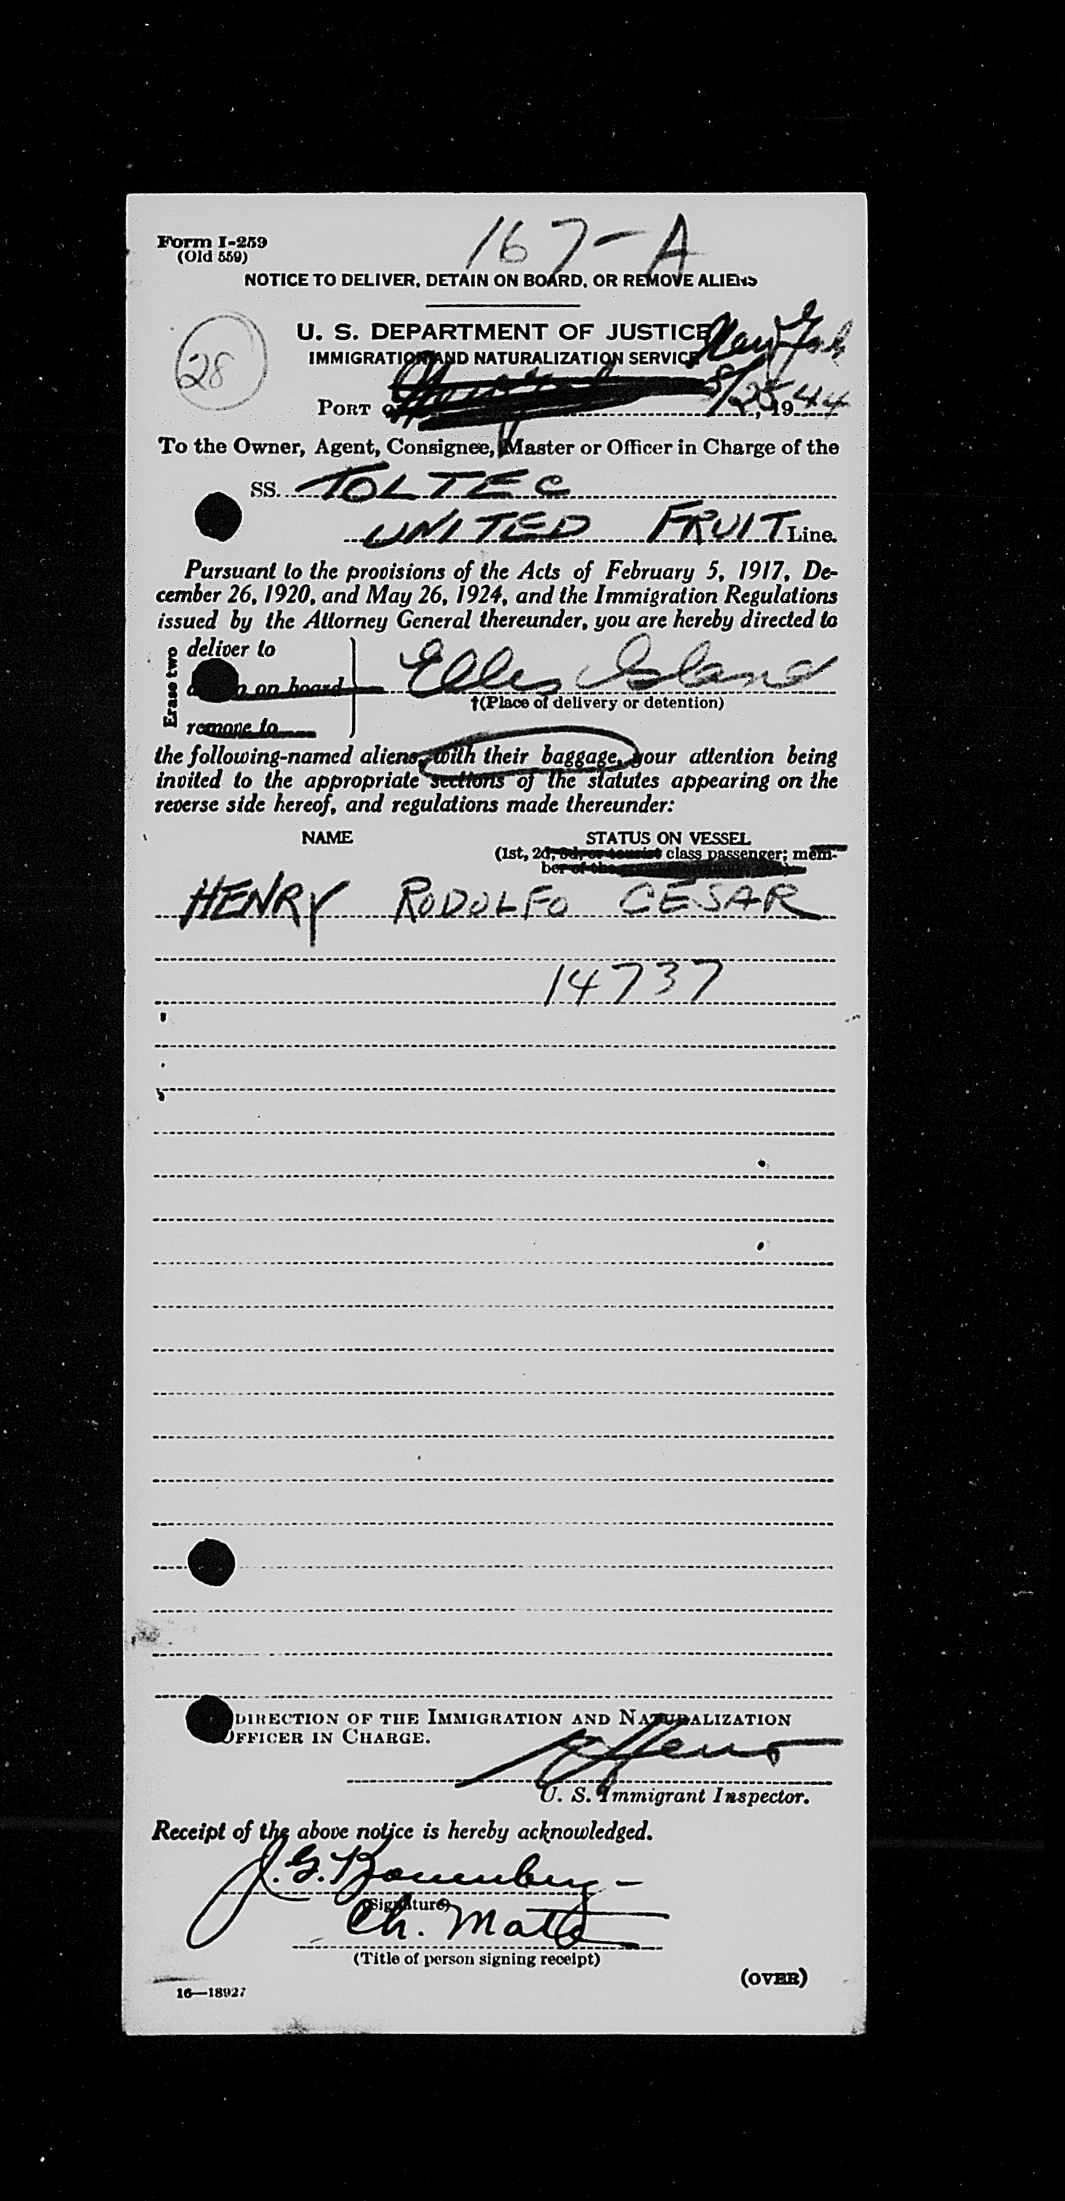 167-A
Form I-259
(Old 559)
NOTICE TO DELIVER, DETAIN ON BOARD, OR REMOVE ALIENS
28
U. S. DEPARTMENT OF JUSTICE
IMMIGRATION AND NATURALIZATION SERVICE
New York
PORT 8/25, 1944
To the Owner, Agent, Consignee, Master or Officer in Charge of the
SS. TOLTEC
UNITED FRUIT Line.
Pursuant to the provisions of the Acts of February 5, 1917, De-
cember 26, 1920, and May 26, 1924, and the Immigration Regulations
issued by the Attorney General thereunder, you are hereby directed to
Erase two
deliver to
on board
remove to
Ellis Island
†(Place of delivery or detention)
the following-named aliens, with their baggage, your attention being
invited to the appropriate sections of the statutes appearing on the
reverse side hereof, and regulations made thereunder:
NAME STATUS ON VESSEL
(1st, 2d, 3d, or tourist class passenger; mem-
ber of the
HENRY RODOLFO CESAR
14737
DIRECTION OF THE IMMIGRATION AND NATURALIZATION
OFFICER IN CHARGE.
U. S. Immigrant Inspector.
Receipt of the above notice is hereby acknowledged.
J. G.
(Signature)
Ch. Mate
(Title of person signing receipt)
(OVER)
16—18927